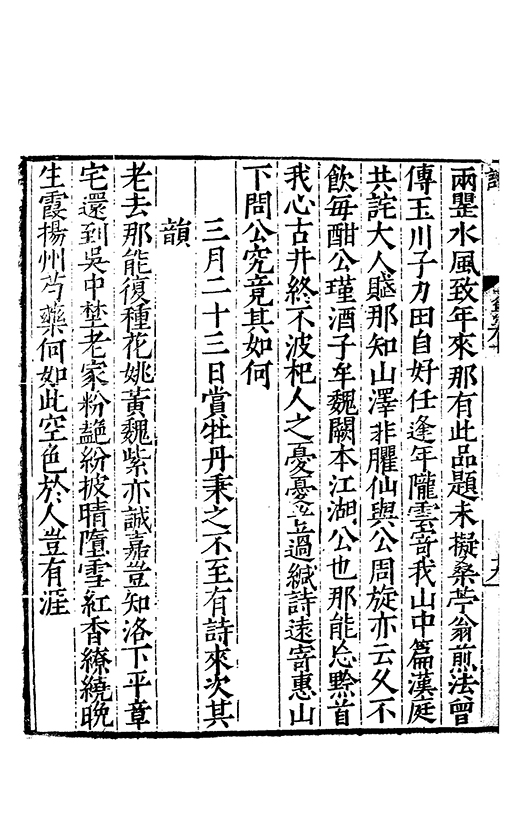 兩罌水風致年來那有此品題未擬桑苧翁煎法曾
傳玉川子力田自好任逢年隴雲寄我山中篇漢庭
共詫大人賦那知山澤非臞仙與公周旋亦云久不
飲每酣公瑾酒子牟魏闕本江湖公也那能忘黔首
我心古井終不波杞人之憂憂豈過緘詩遠寄惠山
下問公究竟其如何
三月二十三日賞牡丹秉之不至有詩來次其
韻
老去那能復種花姚黃魏紫亦誠嘉豈知洛下平章
宅還到吳中埜老家粉豔紛披晴墮雪紅香繚繞晚
生霞揚州芍藥何如此空色於人豈有涯